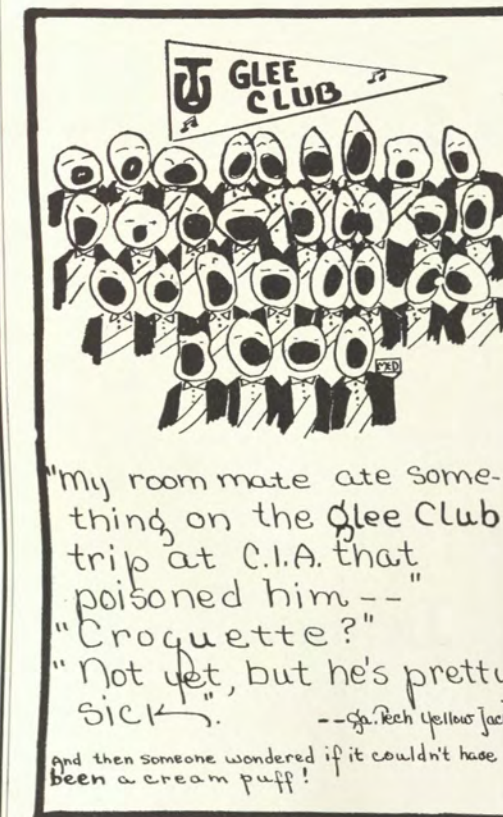 GLEE
CLUB
MED
"My room mate ate some-
thing on the Glee Club
trip at C.I.A. that
poisoned him --"
"Croquette?"
"Not yet, but he's pretty
sick".
--Ga. Tech Yellow Jac
And then someone wondered if it couldn't have
been a cream puff!